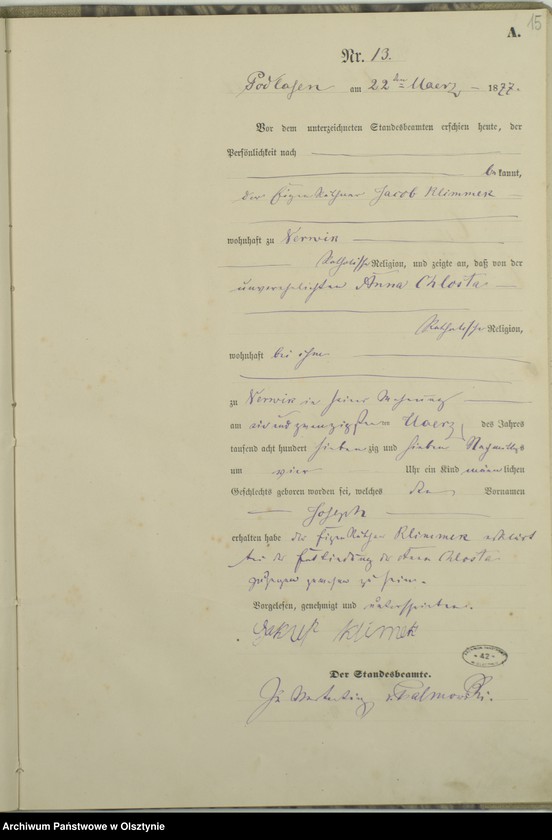 15
A.
Nr. 13.
Podlasen am 22ten Maerz 1877.
Vor dem unterzeichneten Standesbeamten erschien heute, der
Persönlichkeit nach
bekannt,
der Eigenkäthner Jacob Klimmek
wohnhaft zu Nerwik
Katholischer Religion, und zeigte an, daß von der
unverehelichten Anna Chlosta
Katholischer Religion,
wohnhaft bei ihm
zu Nerwik in seiner Wohnung
am ein und zwanzigsten Maerz des Jahres
tausend acht hundert siebenzig und sieben Nachmittags
um vier Uhr ein Kind männlichen
Geschlechts geboren worden sei, welches den Vornamen
Joseph
erhalten habe der Eigenkäthner Klimmek erklärt
bei der Entbindung der Anna Chlosta
zugegen gewesen zu sein.
Vorgelesen, genehmigt und unterschrieben.
Jakup Klimek
42
Der Standesbeamte.
In Vertretung
Archiwum Państwowe w Olsztynie